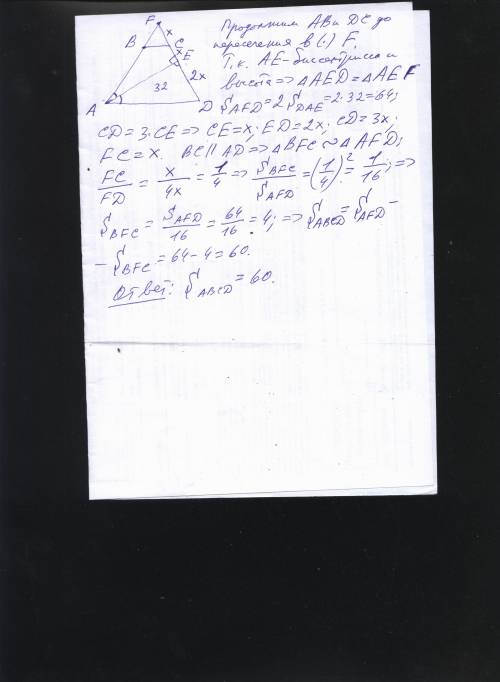 F
x
B
C
x
E
2x
32
A
D
Продолжим AB и DC до
пересечения в (·) F.
Т.к. AE-биссектриса и
высота => △AED = △AEF
S AFD = 2 S DAE = 2·32 = 64;
CD = 3·CE => CE = x; ED = 2x; CD = 3x;
FC = x. BC || AD => △BFC ~ △AFD;
FC/FD = x/4x = 1/4 => S BFC/S AFD = (1/4)² = 1/16; =>
S BFC = S AFD/16 = 64/16 = 4; => S ABCD = S AFD -
- S BFC = 64 - 4 = 60.
Ответ: S ABCD = 60.